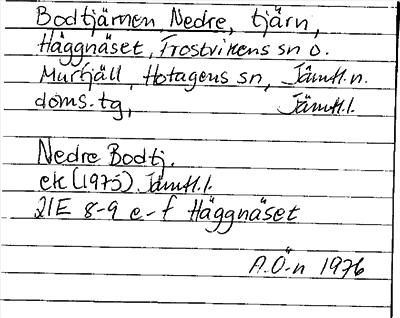 Bodtjärnen Nedre, tjärn,
Häggnäset, Frostvikens sn o.
Murfjäll, Hotagens sn, Jämtl. n.
doms. tg, Jämtl. l.
Nedre Bodtj.
ek (1975) Jämtl. l.
21E 8-9 e-f Häggnäset
A.Ö-n 1976